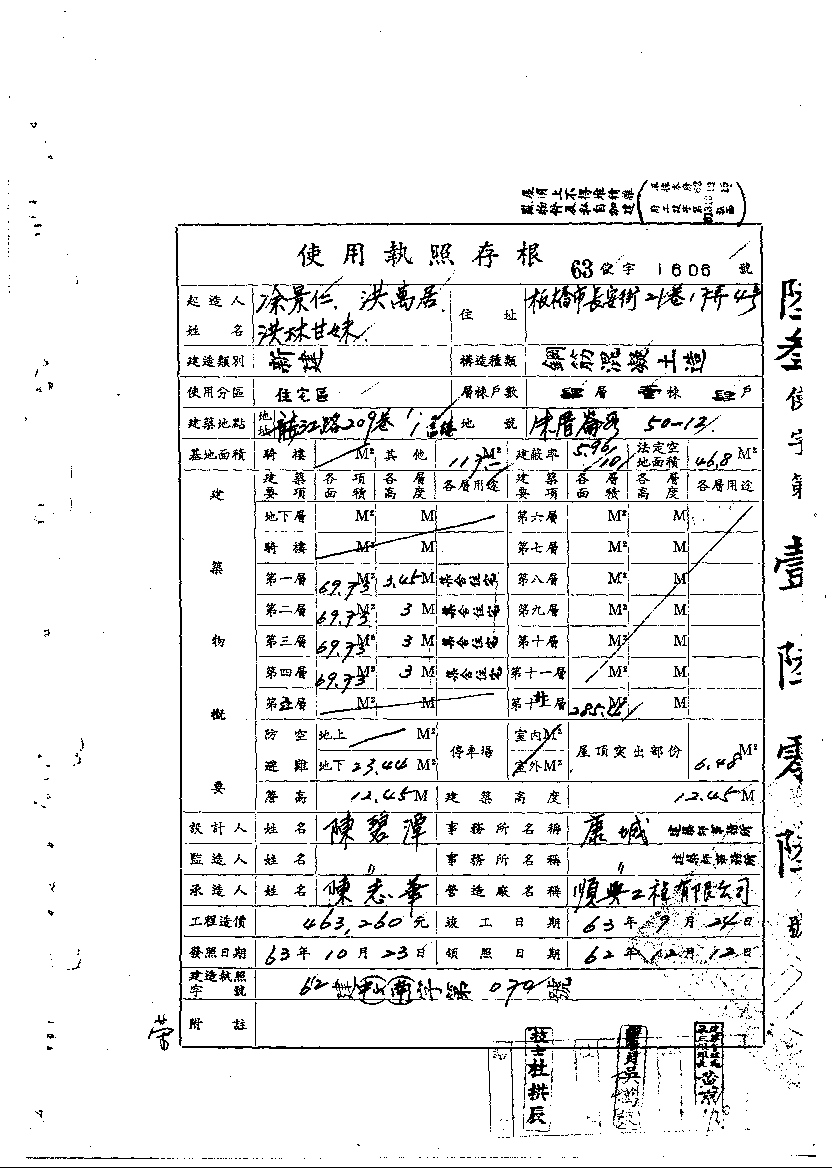 使用執照存根
63 使字 1606 號
起造人姓名 涂景仁、洪萬居、洪林甘妹 住址 板橋市長安街21巷17弄4號
建造類別 新建 構造種類 鋼筋混凝土造
使用分區 住宅區 層棟戶數 層 棟 戶
建築地點 地址 龍江路209巷 地號 朱厝崙段 50-12
基地面積 騎樓 M² 其他 M² 建蔽率 法定空地面積 46.8 M²
建築物概要
建築要項 各項面積 各層高度 各層用途 建築要項 各層面積 各層高度 各層用途
地下層 M² M 第六層 M² M
騎樓 M² M 第七層 M² M
第一層 69.73 M² 3.45 M 集合住宅 第八層 M² M
第二層 69.73 M² 3 M 集合住宅 第九層 M² M
第三層 69.73 M² 3 M 集合住宅 第十層 M² M
第四層 69.73 M² 3 M 集合住宅 第十一層 M² M
第五層 M² M M² M
防空避難 地上 M² 停車場 室內 M² 屋頂突出部份 6.48 M²
地下 23.44 M² 室外 M²
簷高 12.45 M 建築高度 12.45 M
設計人 姓名 陳碧潭 事務所名稱 康城 建築師事務所
監造人 姓名 〃 事務所名稱 〃 建築師事務所
承造人 姓名 陳志華 營造廠名稱 順興工程有限公司
工程造價 463,260 元 竣工日期 63年9月24日
發照日期 63年10月23日 領照日期 62年12月12日
建造執照字號 62建 字第 079 號
附註
陸叁使字第壹陸零陸號
技士杜拱辰